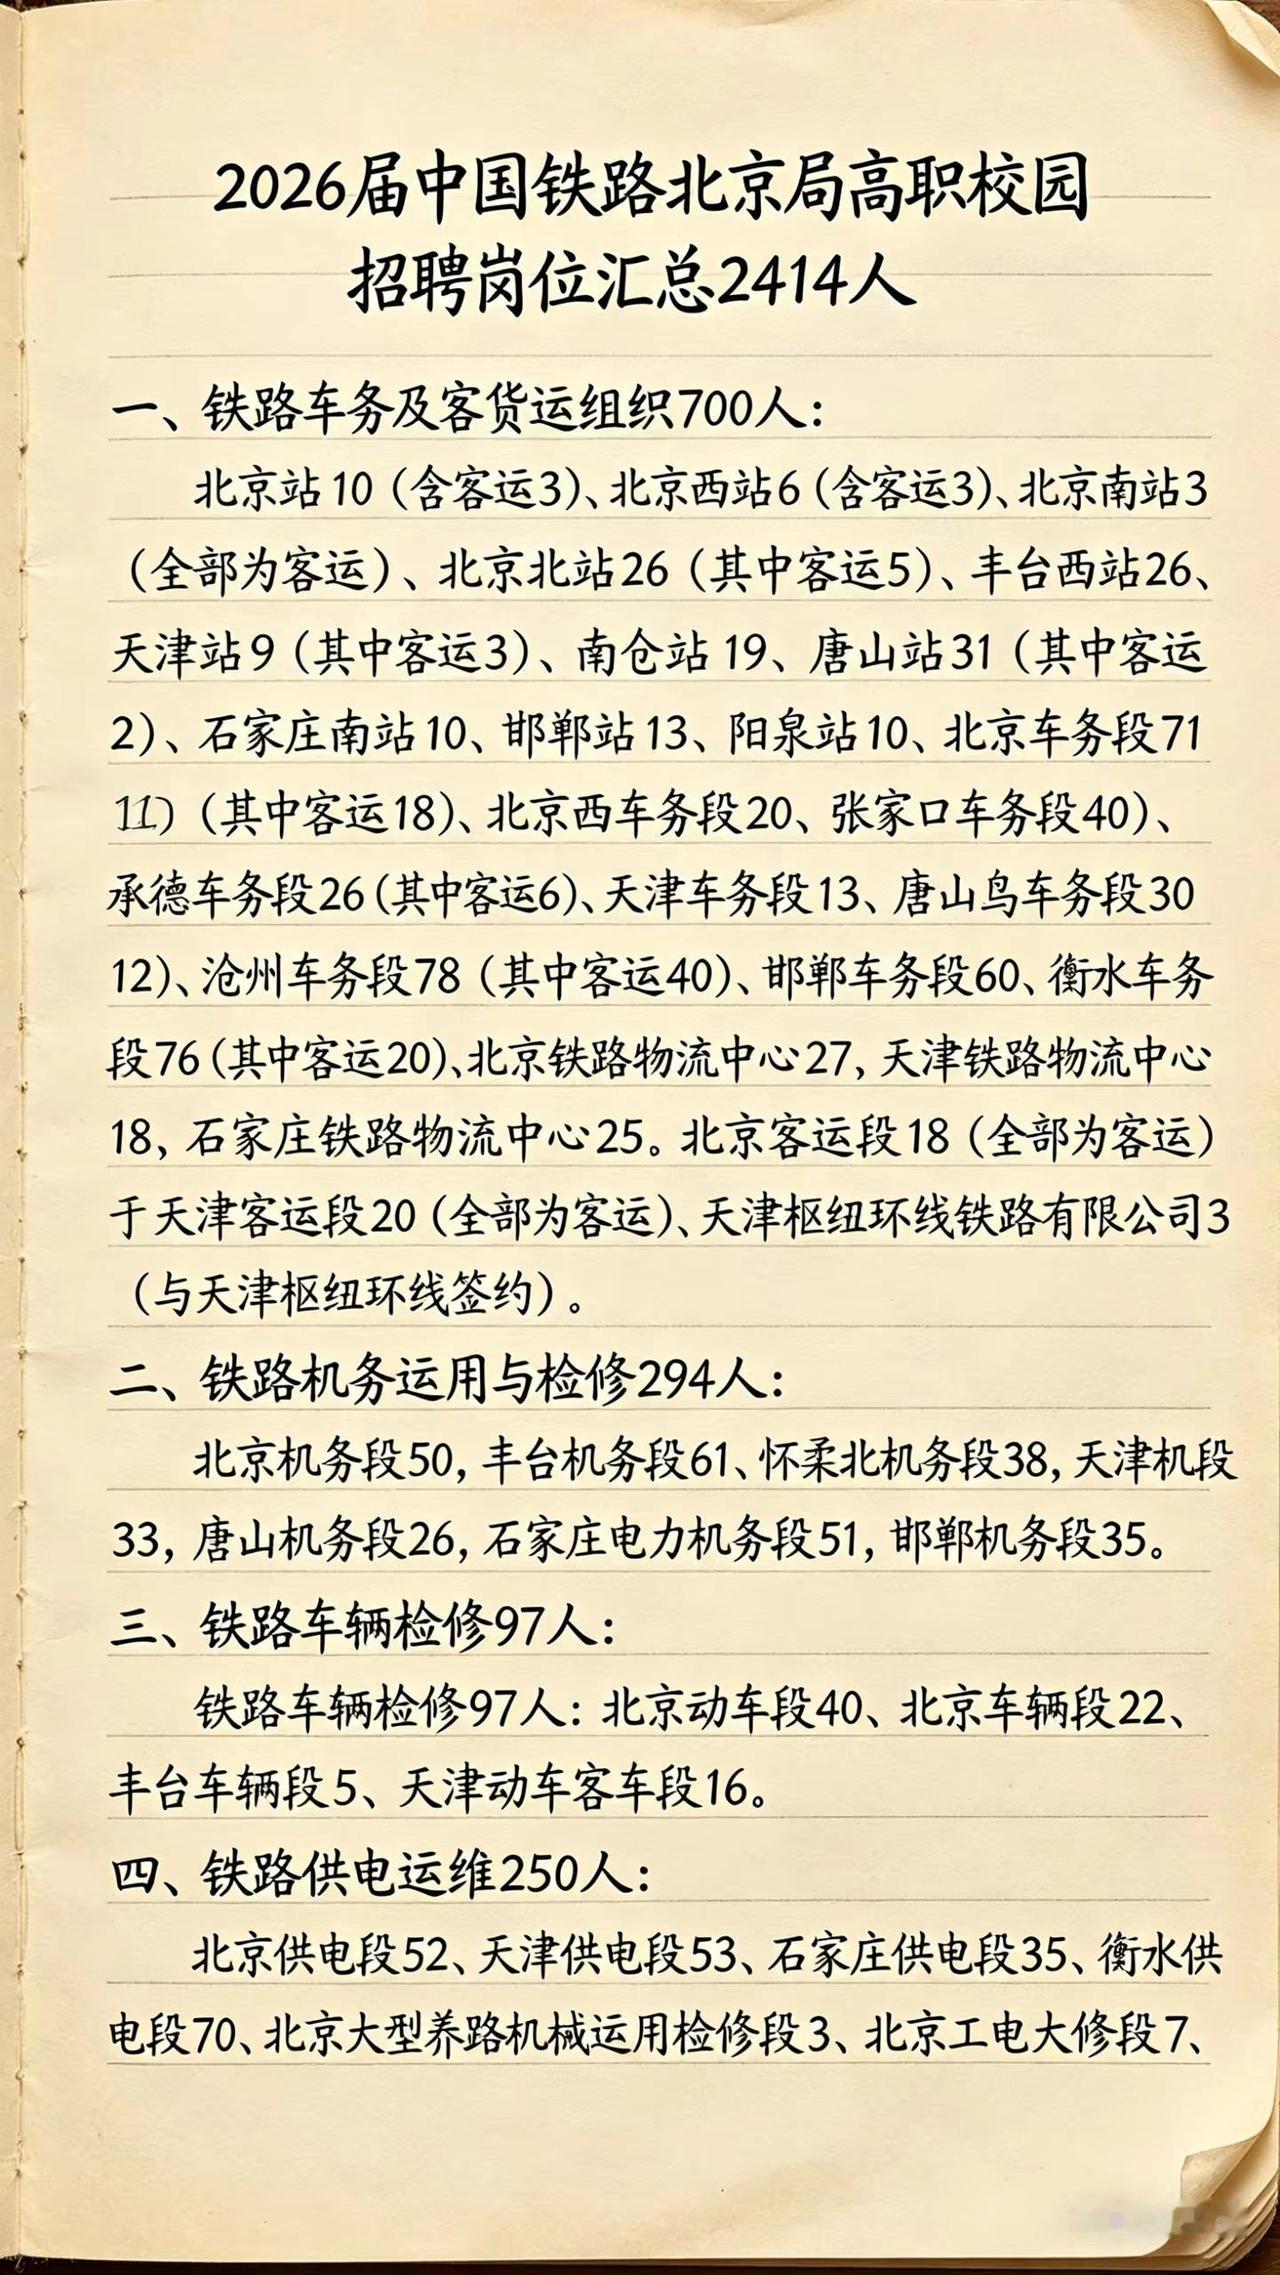 2026届中国铁路北京局高职校园
招聘岗位汇总2414人
一、铁路车务及客货运组织700人：
北京站10（含客运3）、北京西站6（含客运3）、北京南站3
（全部为客运）、北京北站26（其中客运5）、丰台西站26、
天津站9（其中客运3）、南仓站19、唐山站31（其中客运
2）、石家庄南站10、邯郸站13、阳泉站10、北京车务段71
11）（其中客运18）、北京西车务段20、张家口车务段40）、
承德车务段26（其中客运6）、天津车务段13、唐山鸟车务段30
12）、沧州车务段78（其中客运40）、邯郸车务段60、衡水车务
段76（其中客运20）、北京铁路物流中心27，天津铁路物流中心
18，石家庄铁路物流中心25。北京客运段18（全部为客运）
于天津客运段20（全部为客运）、天津枢纽环线铁路有限公司3
（与天津枢纽环线签约）。
二、铁路机务运用与检修294人：
北京机务段50，丰台机务段61、怀柔北机务段38，天津机段
33，唐山机务段26，石家庄电力机务段51，邯郸机务段35。
三、铁路车辆检修97人：
铁路车辆检修97人：北京动车段40、北京车辆段22、
丰台车辆段5、天津动车客车段16。
四、铁路供电运维250人：
北京供电段52、天津供电段53、石家庄供电段35、衡水供
电段70、北京大型养路机械运用检修段3、北京工电大修段7、